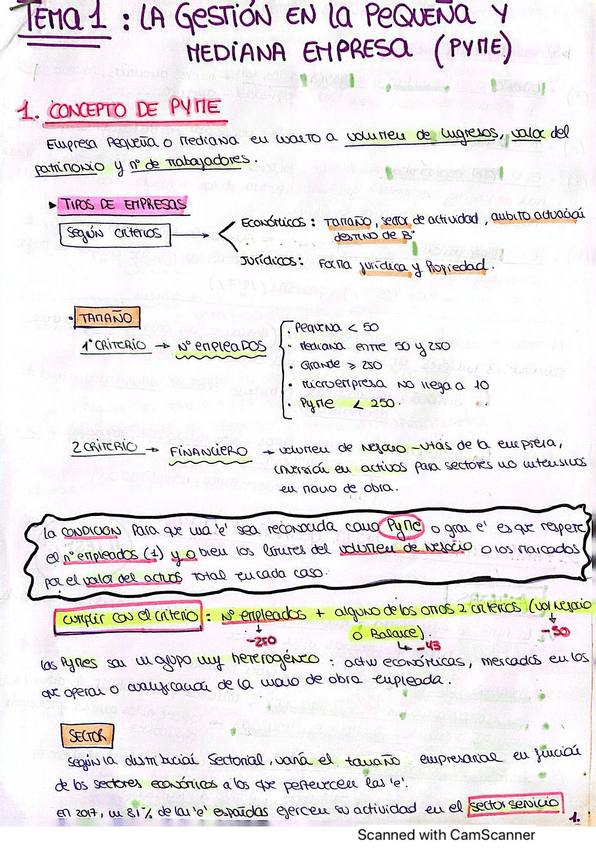 TEMA 1 : LA GESTIÓN EN LA PEQUEÑA Y
MEDIANA EMPRESA (PYME)
1. CONCEPTO DE PYME
Empresa Pequeña o Mediana en cuanto a volumen de ingresos, valor del
patrimonio y nº de trabajadores.
▸ TIPOS DE EMPRESAS
Según criterios →
Económicos : Tamaño, sector de actividad, ámbito actuación
destino de Bº
Jurídicos : Forma jurídica y Propiedad.
· TAMAÑO
1º CRITERIO → Nº EMPLEADOS
· Pequeña < 50
· Mediana entre 50 y 250
· Grande ≥ 250
· microempresa NO llega a 10
· Pyme < 250.
2 CRITERIO → FINANCIERO → volumen de Negocio - Vtas de la empresa,
inversión en activos para sectores no intensivos
en mano de obra.
La CONDICIÓN Para que una 'e' sea reconocida como Pyme o gran e' es que respete
el nº empleados (1) y o bien los límites del volumen de negocio o los marcados
por el valor del activo total en cada caso.
Cumplir con el criterio : Nº empleados + alguno de los otros 2 criterios (vol negocio
o Balance).
-250
-43
-50
Las Pymes son un grupo muy heterogéneo : activ económicas, mercados en los
que operan o cualificación de la mano de obra empleada.
SECTOR
Según la distribución Sectorial, varía el tamaño empresarial en función
de los sectores económicos a los que pertenecen las 'e'.
En 2017, un 81% de las 'e' españolas ejercen su actividad en el sector servicio
1.
Scanned with CamScanner